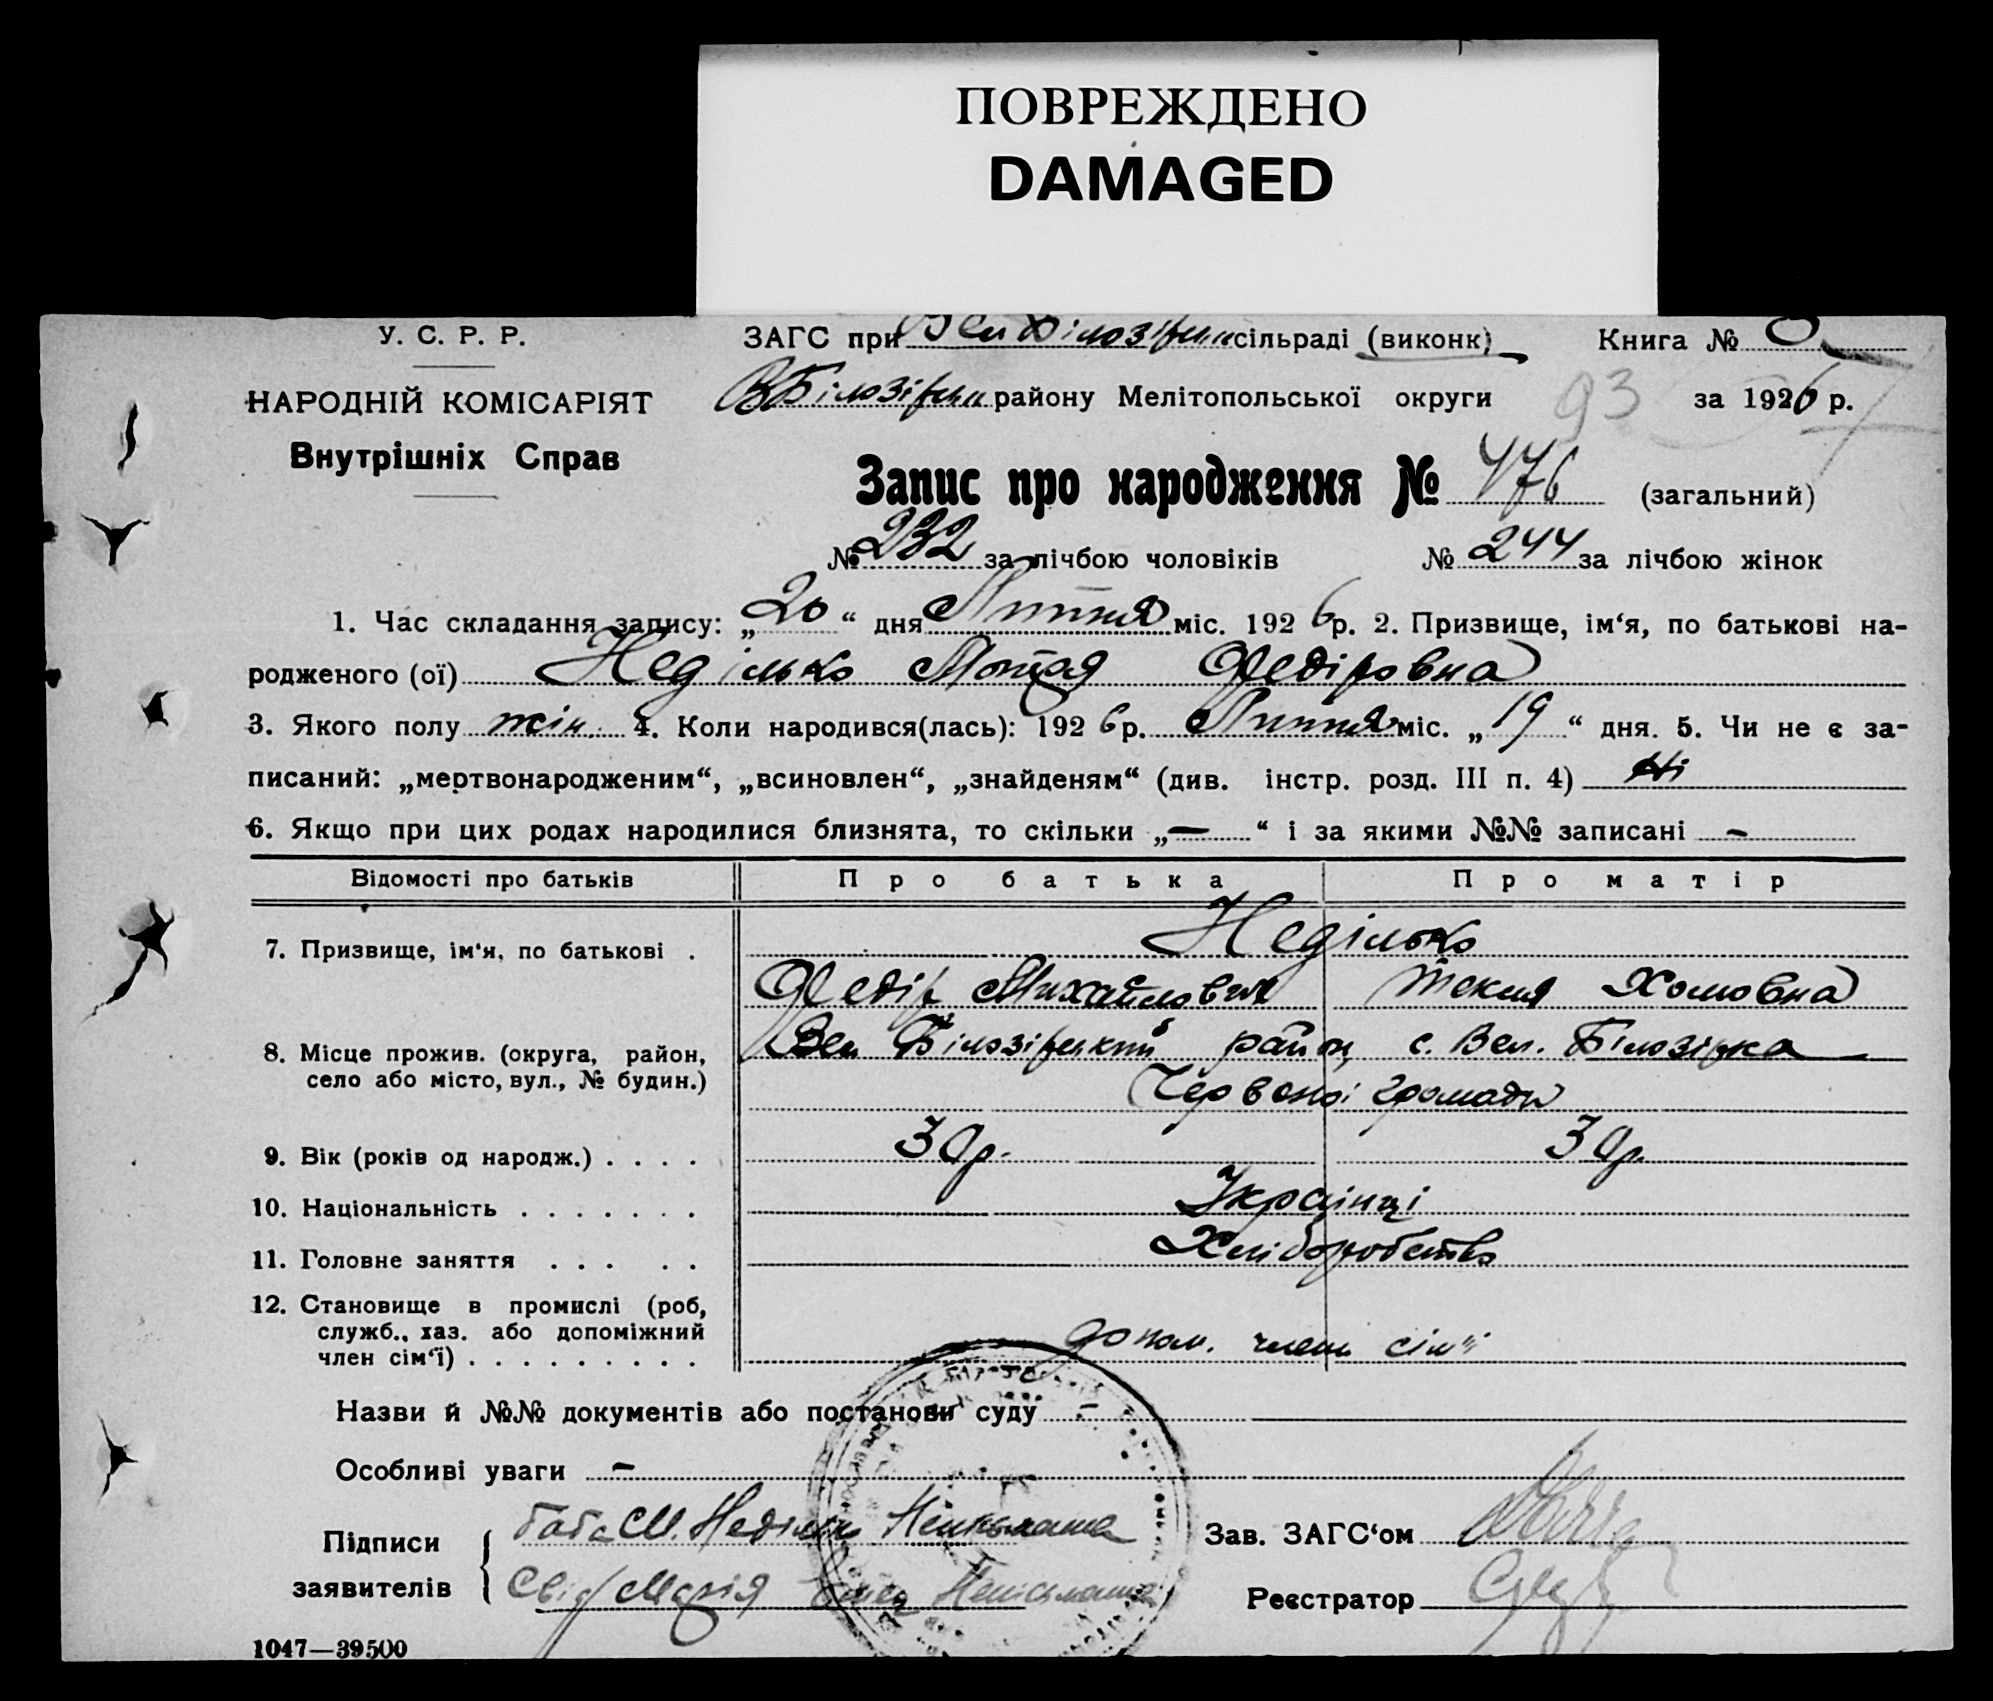 ПОВРЕЖДЕНО
DAMAGED
У. С. Р. Р.
ЗАГС при Вел Білозірськ сільраді (виконк)
Книга №
НАРОДНІЙ КОМІСАРІЯТ
ВБілозірськ району Мелітопольської округи
93
за 1926 р.
Внутрішніх Справ
Запис про народження № 476 (загальний)
№ 232 за лічбою чоловіків № 244 за лічбою жінок
1. Час складання запису: „20“ дня Липня міс. 1926 р. 2. Призвище, ім‘я, по батькові на-
родженого (ої) Неділько Мотря Федіровна
3. Якого полу жін. 4. Коли народився(лась): 1926 р. Липня міс. „19“ дня. 5. Чи не є за-
писаний: „мертвонародженим“, „всиновлен“, „знайденям“ (див. інстр. розд. III п. 4) Ні
6. Якщо при цих родах народилися близнята, то скільки „—“ і за якими №№ записані –
Відомості про батьків
Про батька
Про матір
7. Призвище, ім‘я, по батькові .
Неділько
Федір Михайлович
Текля Хомовна
8. Місце прожив. (округа, район,
село або місто, вул., № будин.)
Вел Білозірський район с. Вел. Білозірка
Червоної громади
9. Вік (років од народж.) . . . .
30р.
30р.
10. Національність . . . . . . .
Українці
11. Головне заняття . . . . .
Хліборобство
12. Становище в промислі (роб,
служб., хаз. або допоміжний
член сім‘ї) . . . . . . . . .
допом. член сім'ї
Назви й №№ документів або постанови суду –
Особливі уваги –
Підписи
заявителів
баба М. Неділько Неписьменна
Свід Марія Неписьменна
Зав. ЗАГС‘ом
Реєстратор
1047—39500